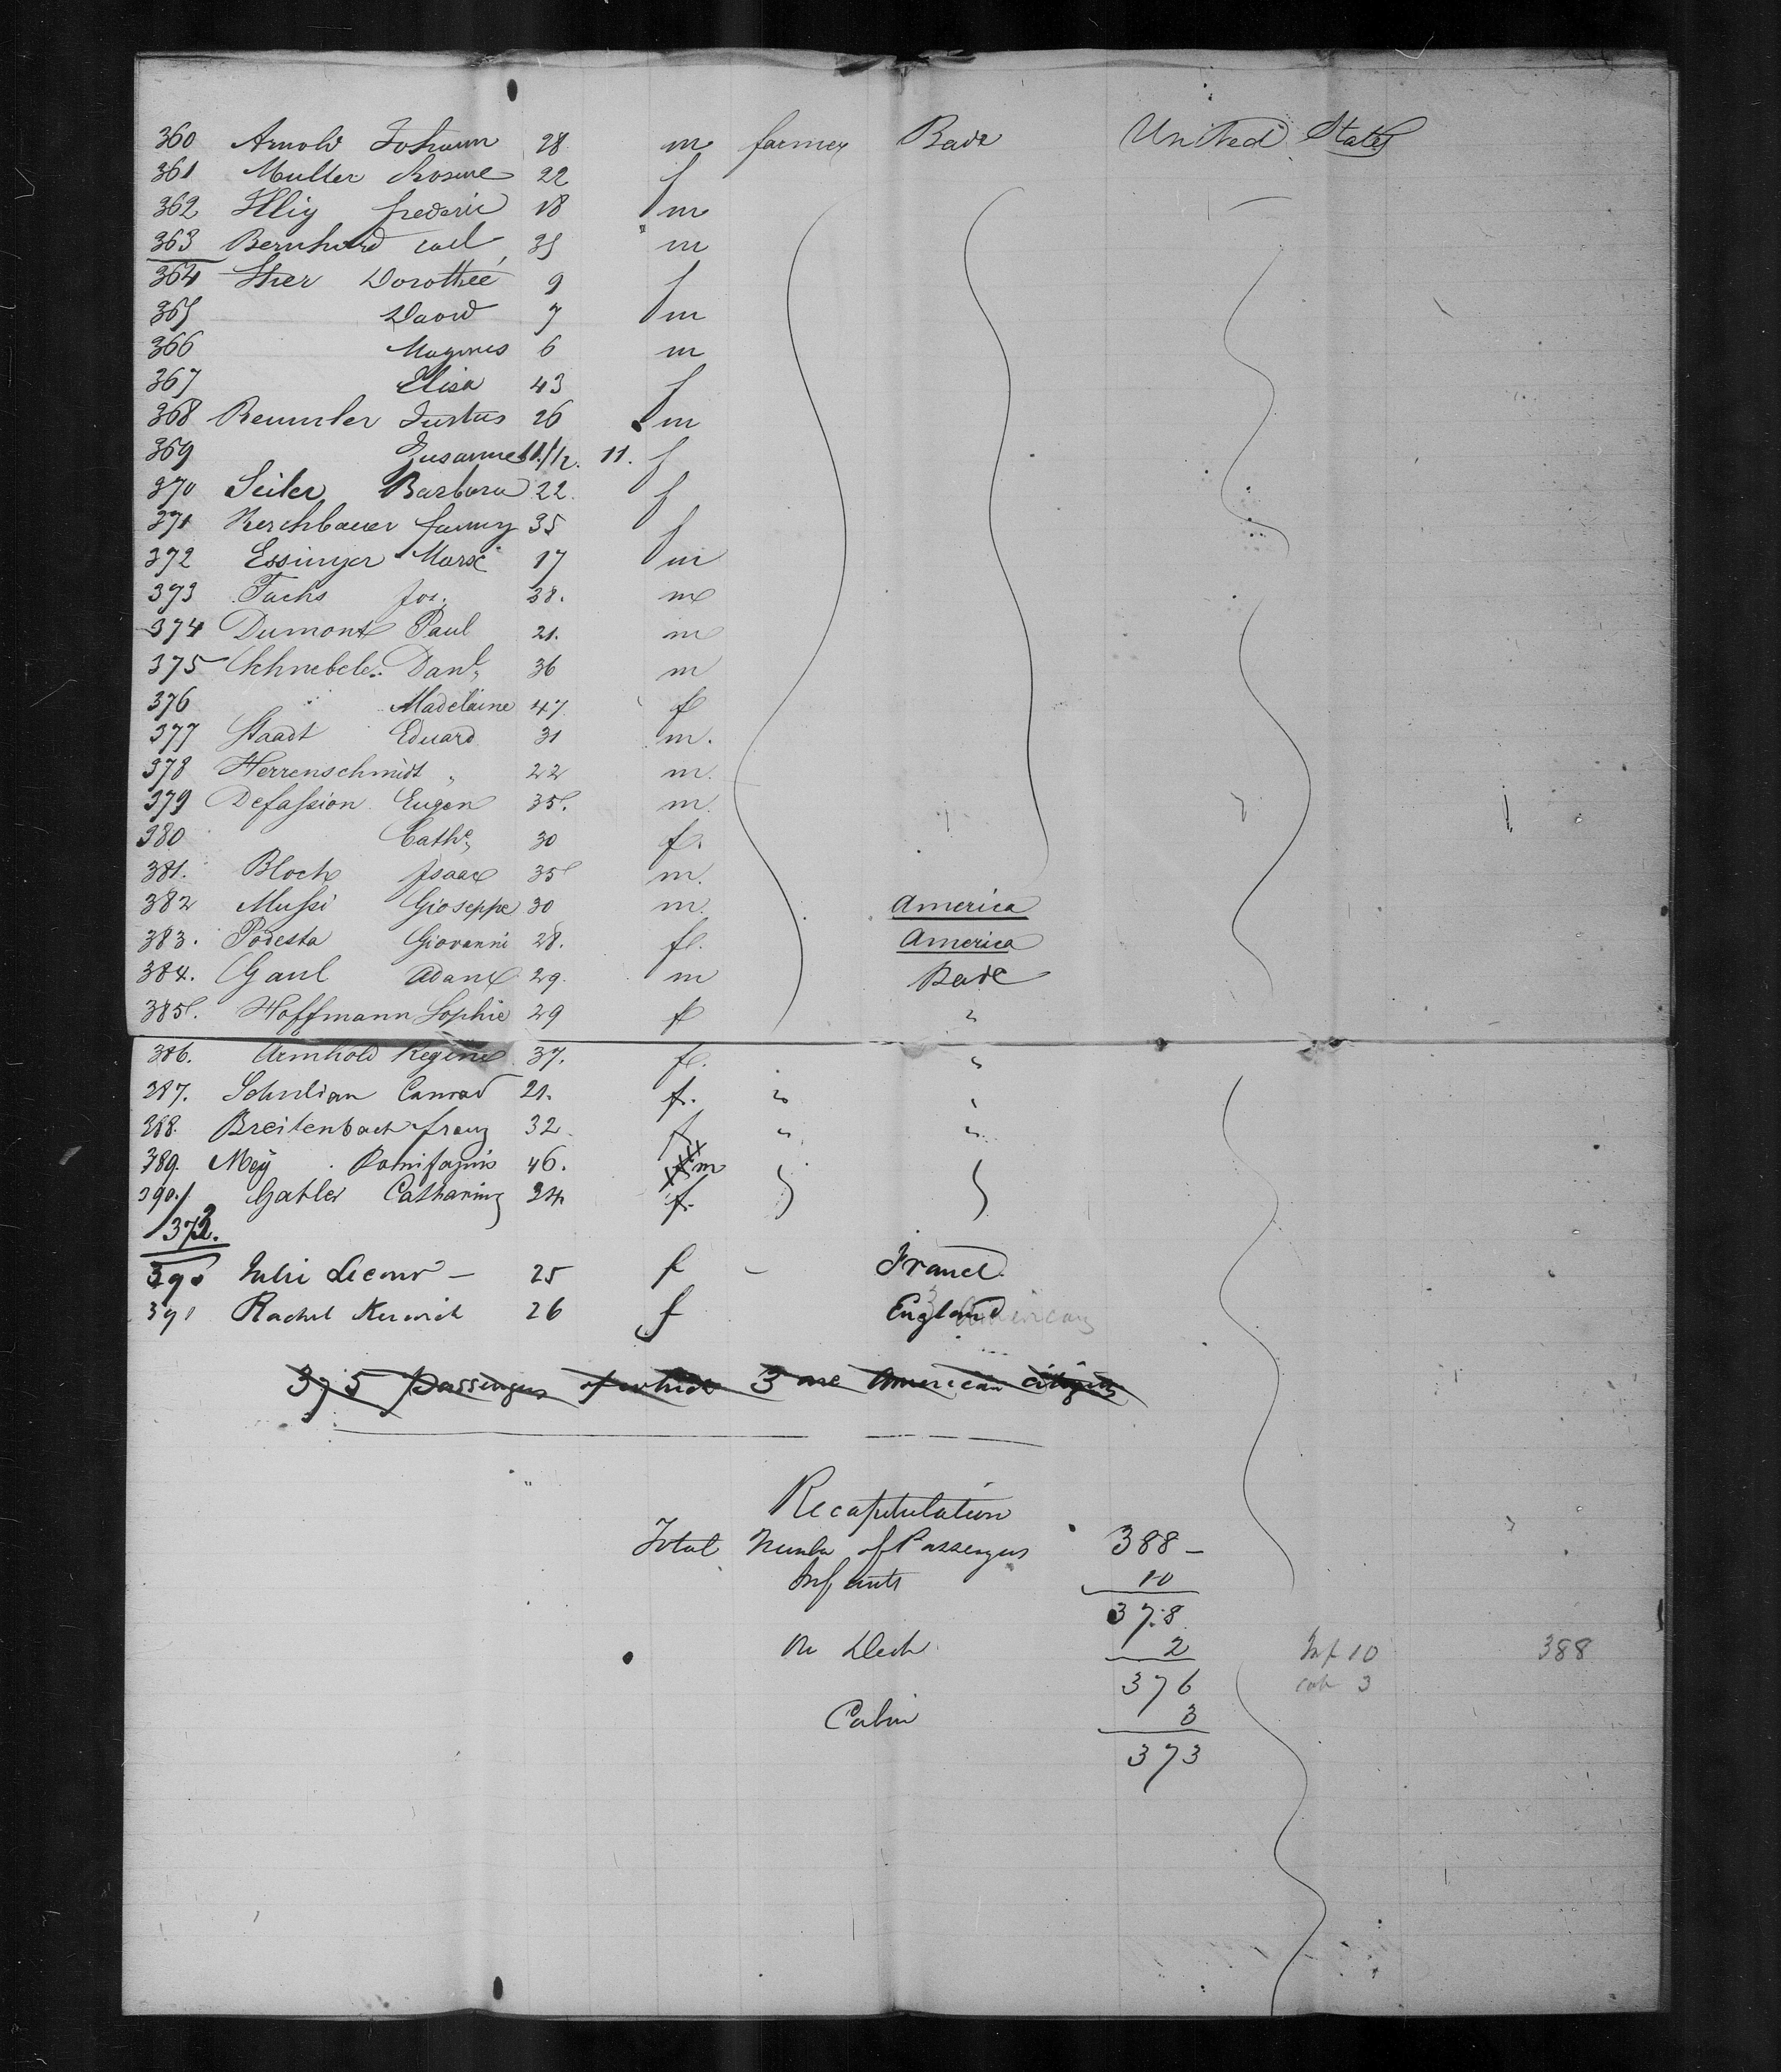 360 Arnold Johann 28 m farmer Bade United States
361 Muller Rosine 22 f
362 Illig frederic 18 m
363 Bernhard carl 35 m
364 Dorothée 9 f
365 David 7 m
366 6 m
367 Elisa 43 f
368 Justus 26 m
369 Susanne 11/12. 11. f
370 Seiler Barbara 22. f
371 Kerchbauer fanny 35 f
372 Essinger Marx 17 m
373 Fuchs Jos. 38. m
374 Dumont Paul 21. m
375 Schnebele Danl. 36 m
376 Madelaine 47 f
377 Staadt Eduard 31 m.
378 Herrenschmidt " 22 m.
379 Defassion Eugen 35. m.
380 Cathe. 30 f.
381. Bloch Isaac 35 m.
382 Mussi Gioseppe 30 m. America
383. Podesta Giovanni 28. f. America
384. Gaul Adam 29. m Bade
385. Hoffmann Sophie 29 f "
386. Armhold Regine 37. f. "
387. Conrad 21. f. " "
388. Breitenbach franz 32 f " "
389. Meÿ 46. m
390. Gabler Catharina 24 f.
373.
390 Julie 25 f – France
391 Rachel 26 f England
375 passengers of which 3 are American citizens
Recapitulation
Total Number of Passengers 388 –
Infants 10
378
On Deck 2 Inf 10 388
376 cab 3
Cabin 3
373